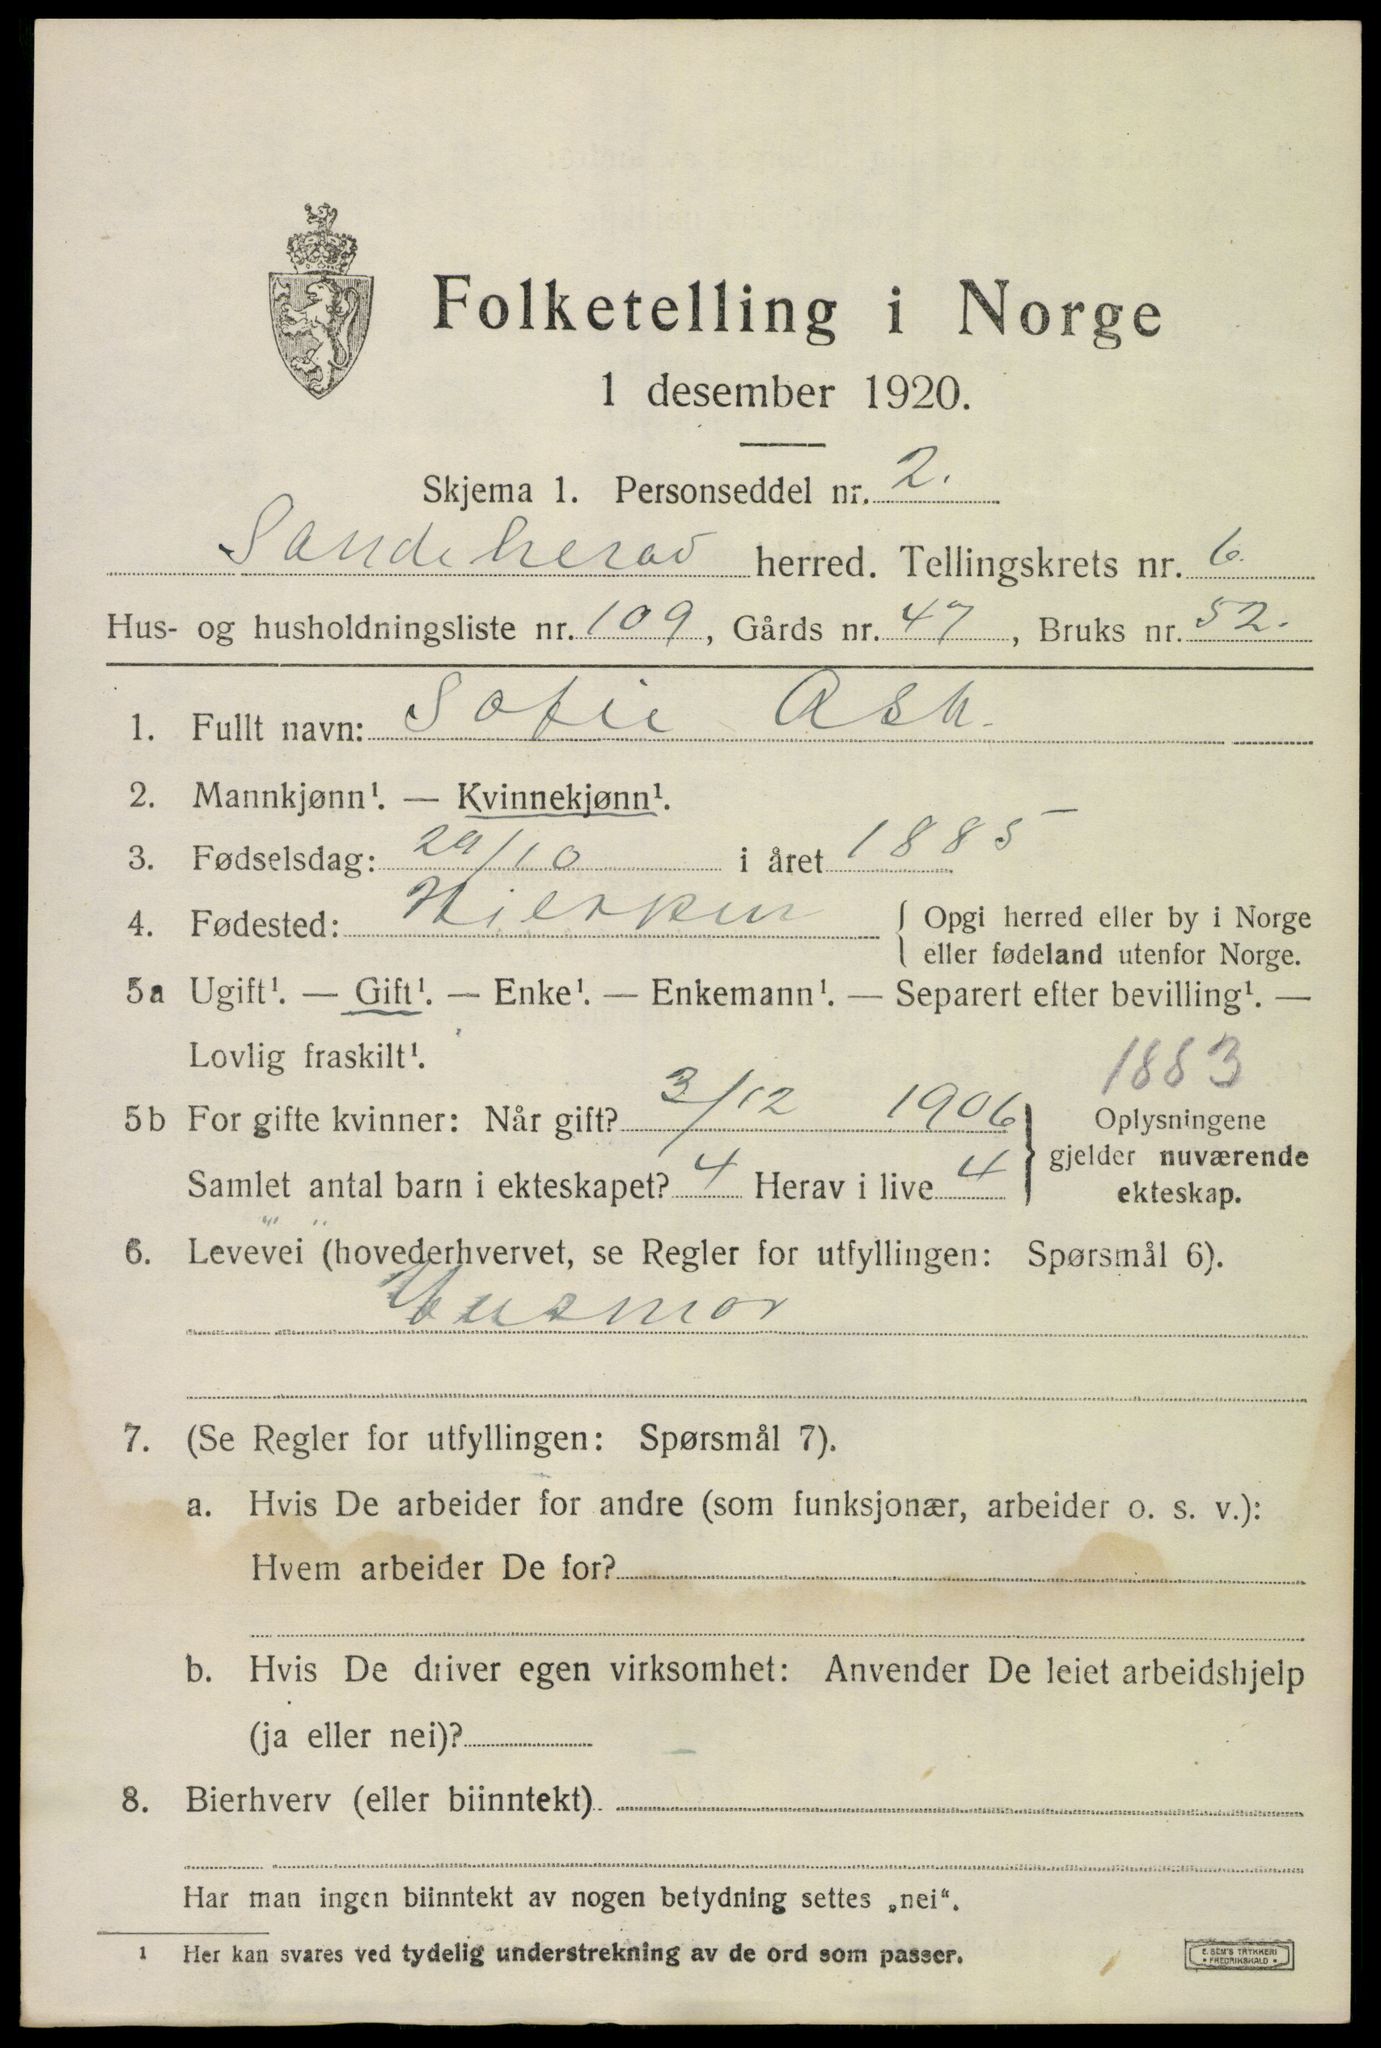 Folketelling i Norge
1 desember 1920.
Skjema 1. Personseddel nr. 2.
Sandeherad herred. Tellingskrets nr. 6.
Hus- og husholdningsliste nr. 109, Gårds nr. 47, Bruks nr. 52.
1. Fullt navn: Sofie Ask.
2. Mannkjønn¹. — Kvinnekjønn¹.
3. Fødselsdag: 29/10 i året 1885
4. Fødested: { Opgi herred eller by i Norge
eller fødeland utenfor Norge.
5a Ugift¹. — Gift¹. — Enke¹. — Enkemann¹. — Separert efter bevilling¹. —
Lovlig fraskilt¹.
1883
5b For gifte kvinner: Når gift? 3/12 1906
Samlet antal barn i ekteskapet? 4 Herav i live 4
} Oplysningene
gjelder nuværende
ekteskap.
6. Levevei (hovederhvervet, se Regler for utfyllingen: Spørsmål 6).
Husmor
7. (Se Regler for utfyllingen: Spørsmål 7).
a. Hvis De arbeider for andre (som funksjonær, arbeider o. s. v.):
Hvem arbeider De for?
b. Hvis De driver egen virksomhet: Anvender De leiet arbeidshjelp
(ja eller nei)? —
8. Bierhverv (eller biinntekt)
Har man ingen biinntekt av nogen betydning settes „nei“.
¹ Her kan svares ved tydelig understrekning av de ord som passer.
E. SEM'S TRYKKERI
• FREDRIKSHALD •